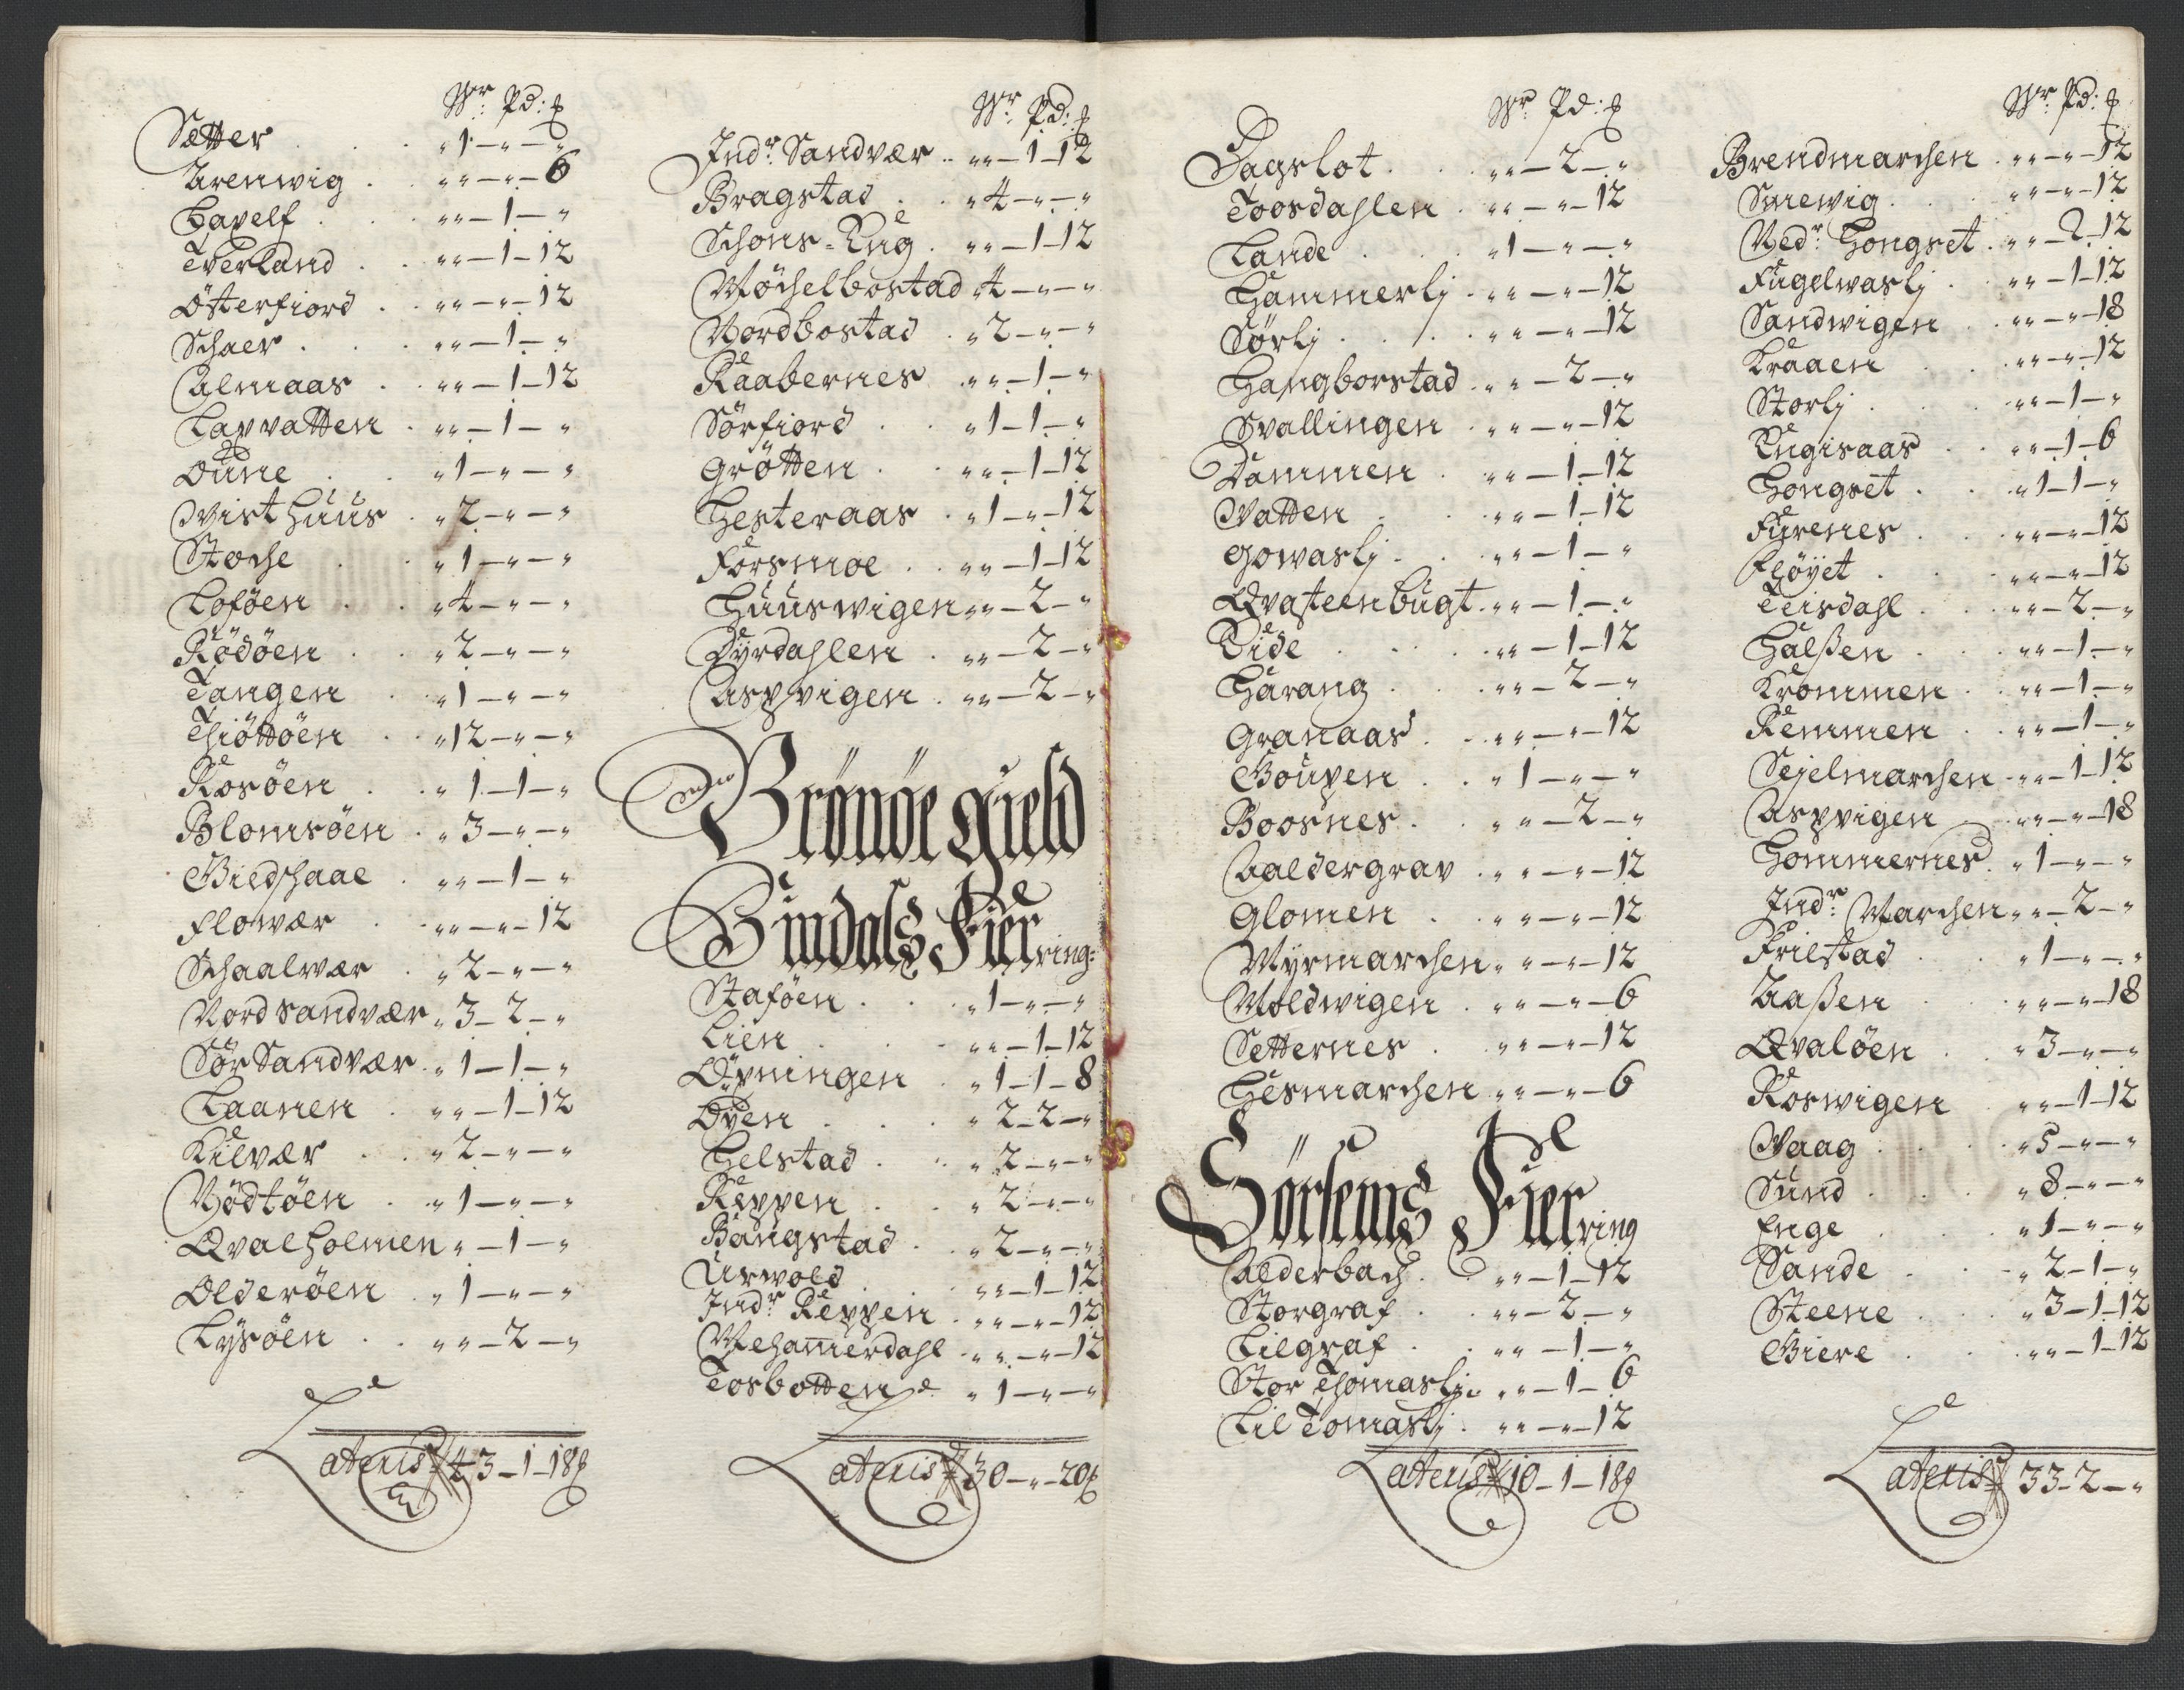 Wr: Pd: ℔
Sætter . . . „ 1 – „ – „
Urenwig . „ „ – „ – 6
Havelf . . „ „ – 1 – „
Tverland . . „ „ – 1 – 12
Österfiord . „ „ – „ – 12
Schaer . . . „ „ – 1 – „
Almaas . „ „ – 1 – 12
Lapvatten . „ „ – 1 – „
Oune . . „ 1 – „ – „
Wisthuus . „ 2 – „ – „
Stoche . . „ 1 – „ – „
Loföen . . „ 4 – „ – „
Rödöen . „ 2 – „ – „
Tangen . „ 1 – „ – „
Thiöttöen . „ 12 – „ – „
Rosöen . . „ 1 – 1 – „
Blomsöen . „ 3 – „ – „
Giedschaae . „ „ – 1 – „
Flowær . „ „ – „ – 12
Schaalwær . „ 2 – „ – „
Nordsandvær „ 3 – 2 – „
Sør Sandvær . „ 1 – 1 – „
Laanen . „ „ – 1 – 12
Kilvær . . „ 2 – „ – „
Nödtöen . . „ 1 – „ – „
Qvalholmen „ – 1 – „
Olderöen . „ 1 – „ – „
Lysöen . „ „ – 2 – „
Lateris 43 – 1 – 18 ℔
Wr: Pd: ℔
Indr: Sandvær . „ „ – 1 – 12
Bragstad . . „ 4 – „ – „
Schons-Eng . „ „ – 1 – 12
Møchelbostad „ 4 – „ – „
Nordbostad . „ 2 – „ – „
Raabernes . „ „ – 1 – „
Sörfiord . . „ 1 – 1 – „
Grötten . . „ „ – 1 – 12
Hesteraas . „ 1 – „ – 12
Forsmoe . . „ „ – 1 – 12
Huuswigen „ „ – 2 – „
Dyrdahlen . „ „ – 2 – „
Aspvigen . „ „ – 2 – „
Brønøe Gield
Bindals Fierring:
Staföen . . „ 1 – „ – „
Lien . . „ „ – 1 – 12
Øpningen . „ 1 – 1 – 8
Øyen . . . „ 2 – 2 – „
Helstad . . „ 2 – „ – „
Reppen . . „ 2 – „ – „
Bangstad . „ 2 – „ – „
Urwold . „ „ – 1 – 12
Indr: Reppen . „ „ – „ – 12
Mehamerdahl . „ „ – „ – 12
Tosbotten . „ 1 – „ – „
Lateris 30 – „ – 20 ℔
Wr: Pd: ℔
Dagslot . . „ „ – 2 – „
Toosdahlen . „ „ – „ – 12
Lande . . „ 1 – „ – „
Hammerlj . „ „ – „ – 12
Sörlj . . . „ „ – „ – 12
Hangborstad . „ „ – 2 – „
Svallingen . „ „ – „ – 12
Dammen . „ „ – 1 – 12
Vatten . . „ „ – 1 – 12
Gowaslj . . „ „ – 1 – „
Qvasteenbugt . „ „ – 1 – „
Eide . . . „ „ – 1 – 12
Harang . . „ „ – 2 – „
Granaas . . „ „ – „ – 12
Goupen . . „ 1 – „ – „
Boosnes . . „ „ – 2 – „
Aaldergrav . „ „ – „ – 12
Glomen . „ „ – „ – 12
Myrmarchen „ „ – „ – 12
Moldwigen . „ „ – „ – 6
Setternes . „ „ – „ – 12
Hesmarchen „ „ – „ – 6
Sørsems Fierring
Alderbach . „ „ – 1 – 12
Storgraf . . „ „ – 2 – „
Lilgraf . . „ „ – 1 – „
Stor Thomaslj . „ „ – 1 – 6
Lil Tomaslj . „ „ – „ – 12
Lateris 10 – 1 – 18 ℔
Wr: Pd: ℔
Brendmarchen . „ „ – „ – 12
Smewig . . „ „ – „ – 12
Nedr: Hongset . „ „ – 2 – 12
Fugelwaslj . „ „ – 1 – 12
Sandwigen . „ „ – „ – 18
Kraaen . „ „ – „ – 12
Storlj . . „ „ – 1 – „
Engisaas . „ „ – 1 – 6
Hongset . . „ 1 – 1 – „
Furenes . . „ „ – „ – 12
Fløyet . . „ „ – „ – 12
Teisdahl . . „ „ – 2 – „
Halßen . . „ „ – 1 – „
Krommen . „ „ – 1 – „
Remmen . „ „ – 1 – „
Sejelmarchen . „ „ – 1 – 12
Aspvigen . „ „ – „ – 18
Hommernes . „ 1 – „ – „
Indr: Marchen „ „ – 2 – „
Frilstad . „ 1 – „ – „
Aaßen . „ „ – „ – 18
Qvalöen . . „ 3 – „ – „
Roswigen „ „ – 1 – 12
Vaag . . . „ 5 – „ – „
Sund . . . „ 8 – „ – „
Enge . . „ 1 – „ – „
Sande . . „ 2 – 1 – „
Steene . . „ 3 – 1 – 12
Giere . . „ „ – 1 – 12
Lateris 33 – 2 – „